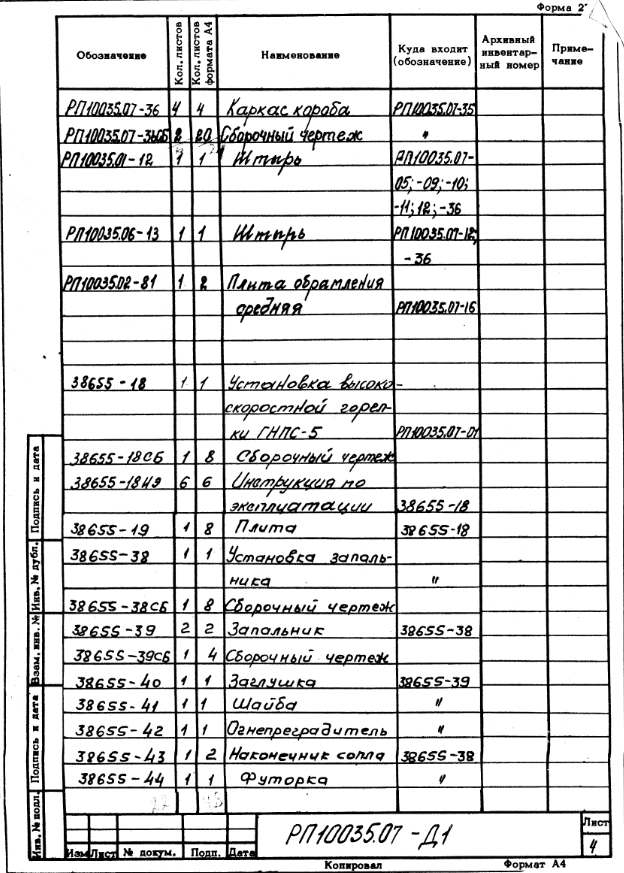 Форма 2
Обозначение Кол. листов Кол. листов формата А4 Наименование Куда входит (обозначение) Архивный инвентар- ный номер Приме- чание
РП10035.07-36 4 4 Каркас короба РП10035.07-35
РП10035.07-36СБ 2 20 Сборочный чертеж "
РП10035.01-12 1 1 Штырь РП10035.07-
05; -09; -10;
-11; 12; -36
РП10035.06-13 1 1 Штырь РП10035.07-12;
-36
РП10035.02-81 1 2 Плита обрамления
средняя РП10035.07-16
38655-18 1 1 Установка высоко-
скоростной горел-
ки ГНПС-5 РП10035.07-01
38655-18СБ 1 8 Сборочный чертеж
38655-18ИЭ 6 6 Инструкция по
эксплуатации 38655-18
38655-19 1 8 Плита 38655-18
38655-38 1 1 Установка запаль-
ника "
38655-38СБ 1 8 Сборочный чертеж
38655-39 2 2 Запальник 38655-38
38655-39СБ 1 4 Сборочный чертеж
38655-40 1 1 Заглушка 38655-39
38655-41 1 1 Шайба "
38655-42 1 1 Огнепреградитель "
38655-43 1 2 Наконечник сопла 38655-38
38655-44 1 1 Футорка "
Подпись и дата
Инв. № дубл.
Взам. инв. №
Подпись и дата
Инв. № подл.
РП10035.07-Д1
Лист
4
Изм Лист № докум. Подп. Дата
Копировал Формат А4